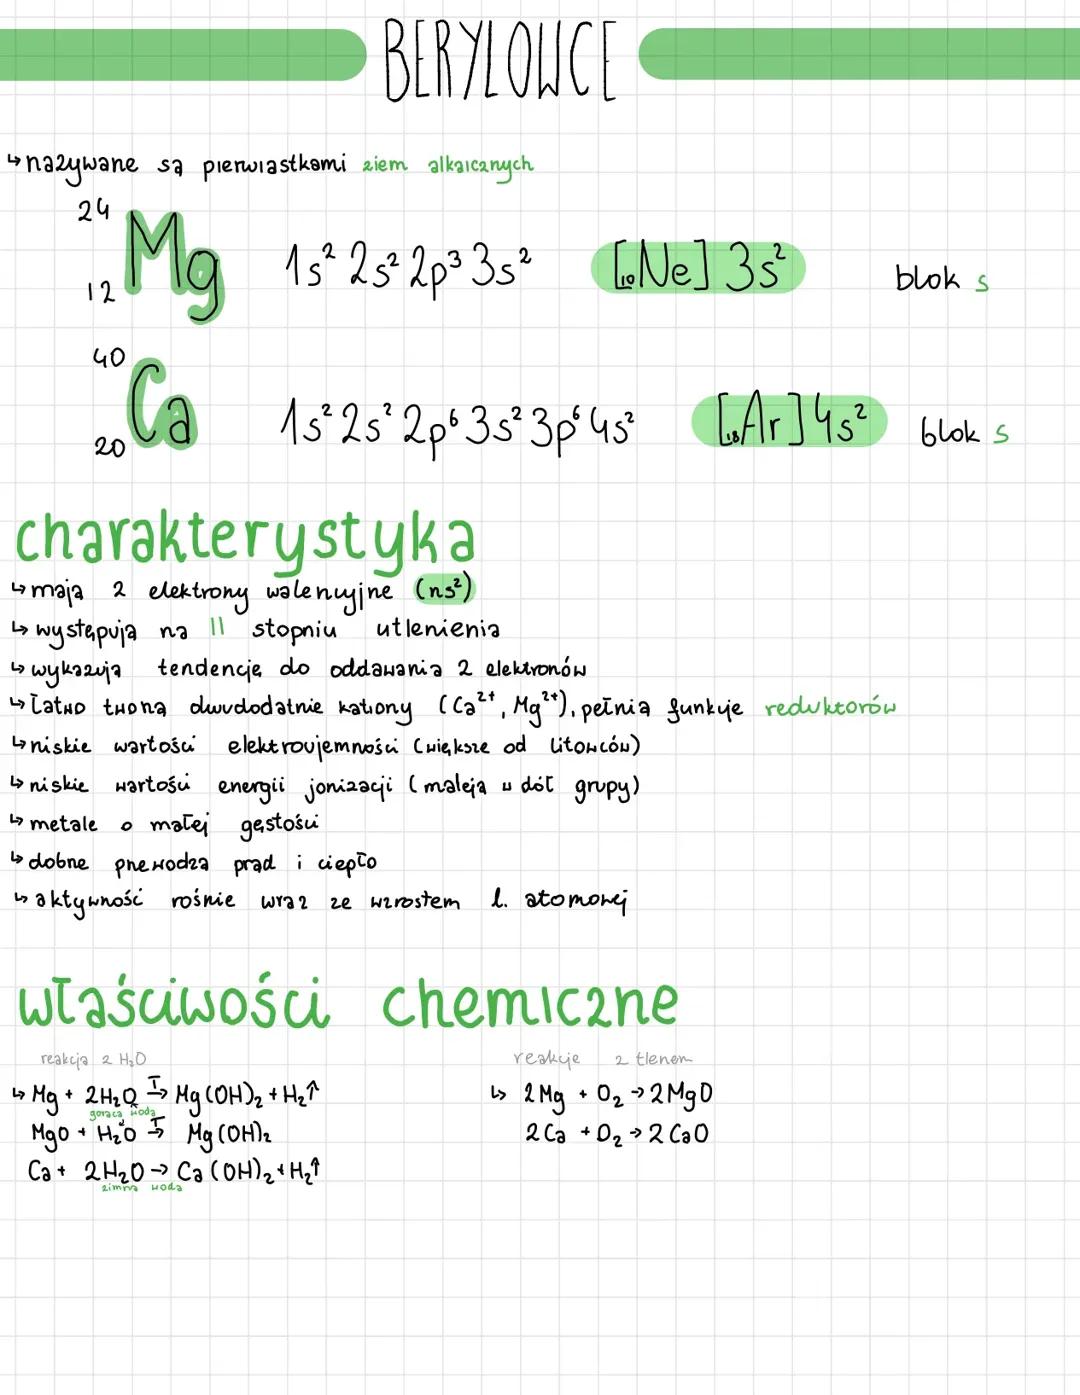 BERYLOWCE
↳ nazywane są pierwiastkami ziem alkaicznych
²⁴₁₂Mg 1s² 2s² 2p³ 3s² [₁₀Ne] 3s² blok s
⁴⁰₂₀Ca 1s² 2s² 2p⁶ 3s² 3p⁶ 4s² [₁₈Ar] 4s² blok s
charakterystyka
↳ mają 2 elektrony walencyjne (ns²)
↳ występują na II stopniu utlenienia
↳ wykazują tendencję do oddawania 2 elektronów
↳ łatwo tworzą dwudodatnie kationy (Ca²⁺, Mg²⁺), pełnią funkcje reduktorów
↳ niskie wartości elektroujemności (większe od litowców)
↳ niskie wartości energii jonizacji (maleją w dół grupy)
↳ metale o małej gęstości
↳ dobrze przewodzą prąd i ciepło
↳ aktywność rośnie wraz ze wzrostem l. atomowej
właściwości chemiczne
reakcja z H₂O
↳ Mg + 2H₂O →ᵀ Mg(OH)₂ + H₂↑
gorąca woda
MgO + H₂O →ᵀ Mg(OH)₂
Ca + 2H₂O → Ca(OH)₂ + H₂↑
zimna woda
reakcje z tlenem
↳ 2Mg + O₂ → 2MgO
2Ca + O₂ → 2CaO